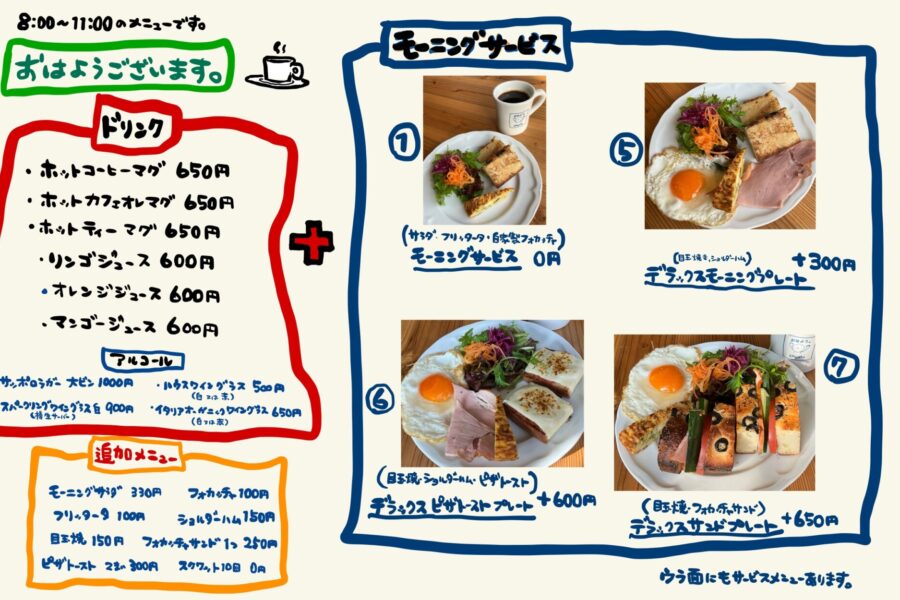 8:00〜11:00のメニューです。
おはようございます。
ドリンク
・ホットコーヒーマグ 650円
・ホットカフェオレマグ 650円
・ホットティーマグ 650円
・リンゴジュース 600円
・オレンジジュース 600円
・マンゴージュース 600円
アルコール
サッポロラガー 大ビン 1000円
・ハウスワイングラス 500円
(白又は赤)
スパークリングワイングラス白 900円
・イタリアオーガニックワイングラス 650円
(白又は赤)
追加メニュー
モーニングサラダ 330円 フォカッチャ 100円
フリッタータ 100円 ショルダーハム 150円
目玉焼 150円 フォカッチャサンド1つ 250円
ピザトースト 2まい 300円 スクワット10回 0円
+
モーニングサービス
①
(サラダ・フリッタータ・自家製フォカッチャ)
モーニングサービス 0円
⑤
(目玉焼き・ショルダーハム)
デラックスモーニングプレート +300円
⑥
(目玉焼・ショルダーハム・ピザトースト)
デラックスピザトーストプレート +600円
⑦
(目玉焼・フォカッチャサンド)
デラックスサンドプレート +650円
ウラ面にもサービスメニューあります。